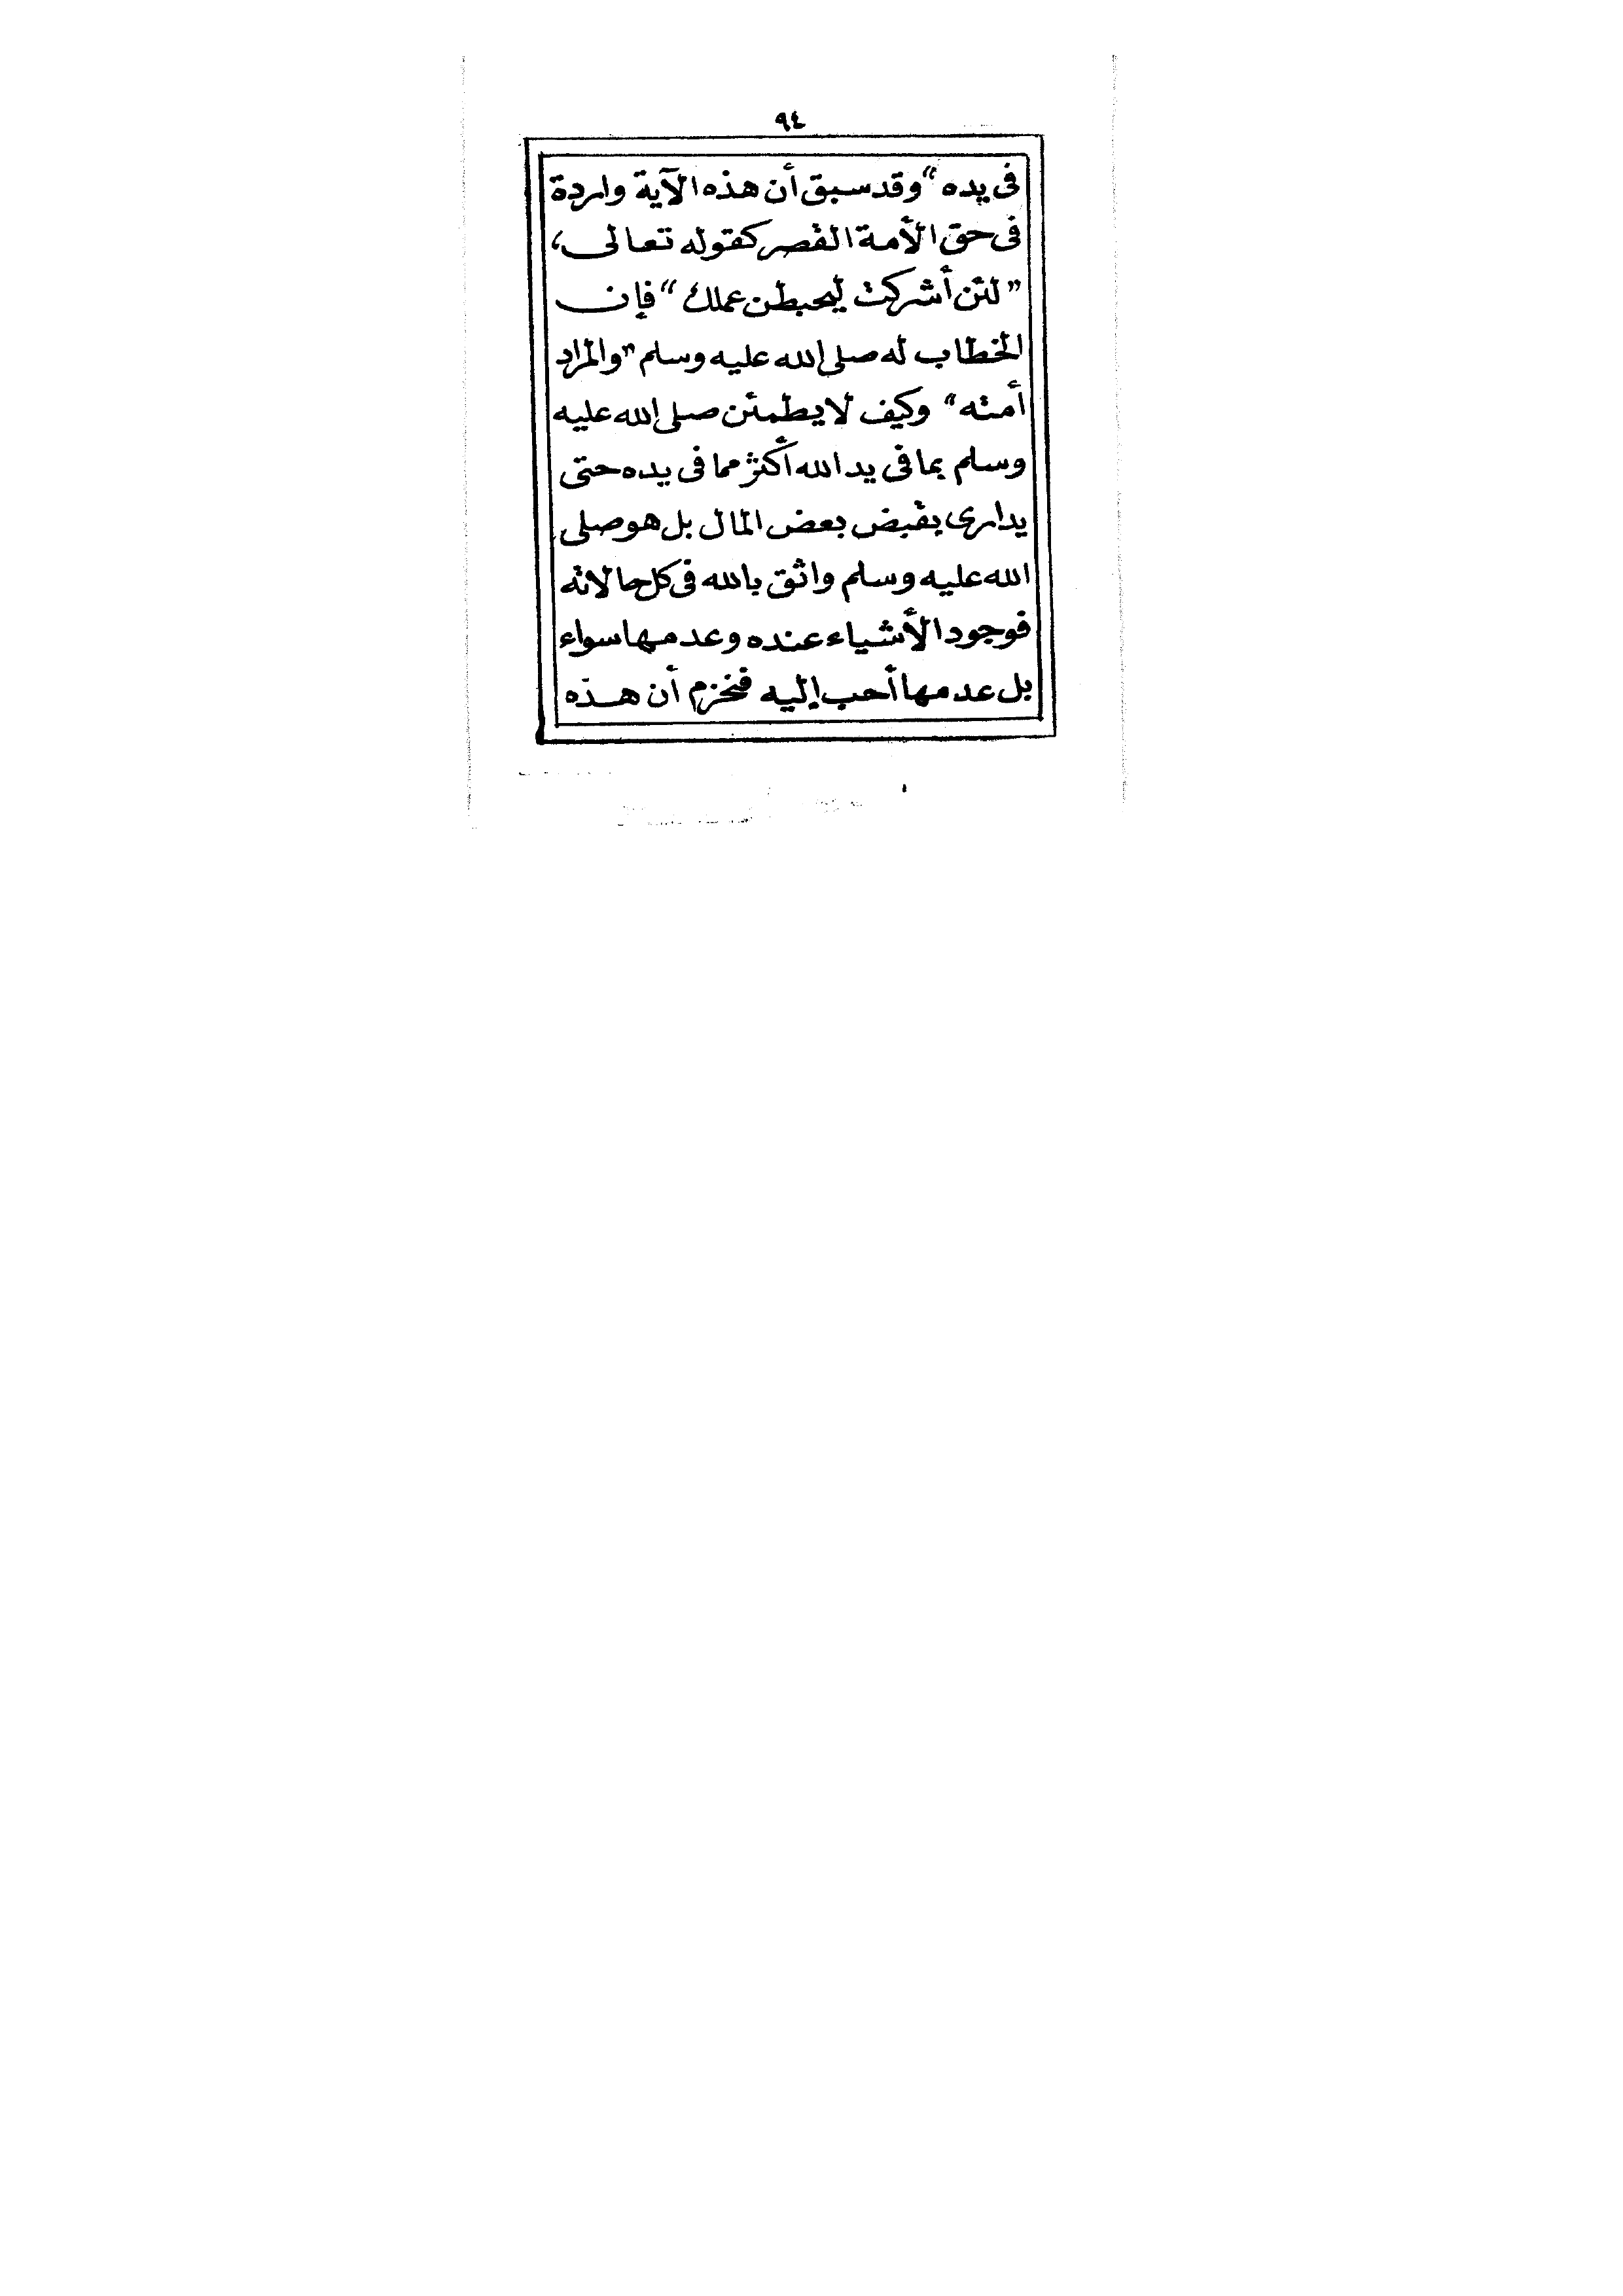 ٩٤
فى يده“ وقد سبق أن هذه الآية واردة
فى حق الأمة القصر كقوله تعالى،
”لئن أشركت ليحبطن عملك“ فإن
الخطاب له صلى الله عليه وسلم ”والمراد
أمته“ وكيف لا يطمئن صلى الله عليه
وسلم بما فى يد الله أكثر مما فى يده حتى
يدارى بقبض بعض المال بل هو صلى
الله عليه وسلم واثق بالله فى كل حالاته
فوجود الأشياء عنده وعدمها سواء
بل عدمها أحب إليه فنجزم أن هذه